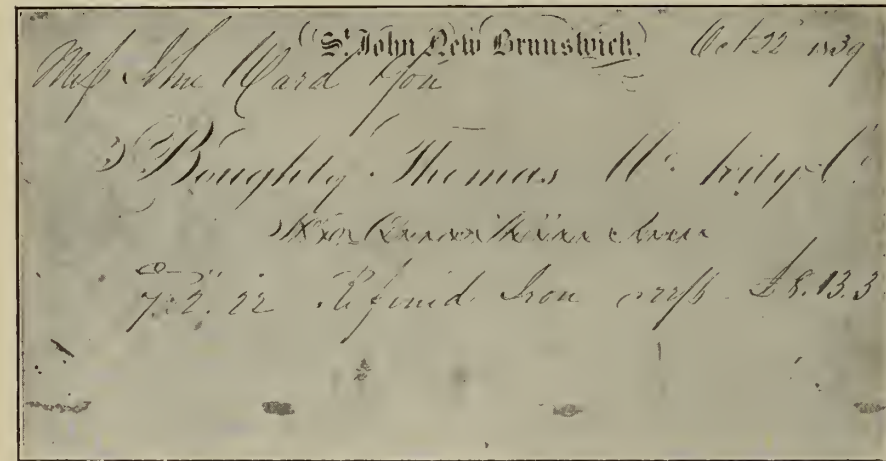 St. John New Brunswick. Oct 22 1839
Messrs John Ward & Son
Bought of Thomas McAvity & Co
7. 2. 22 Refined Iron £8.13.3